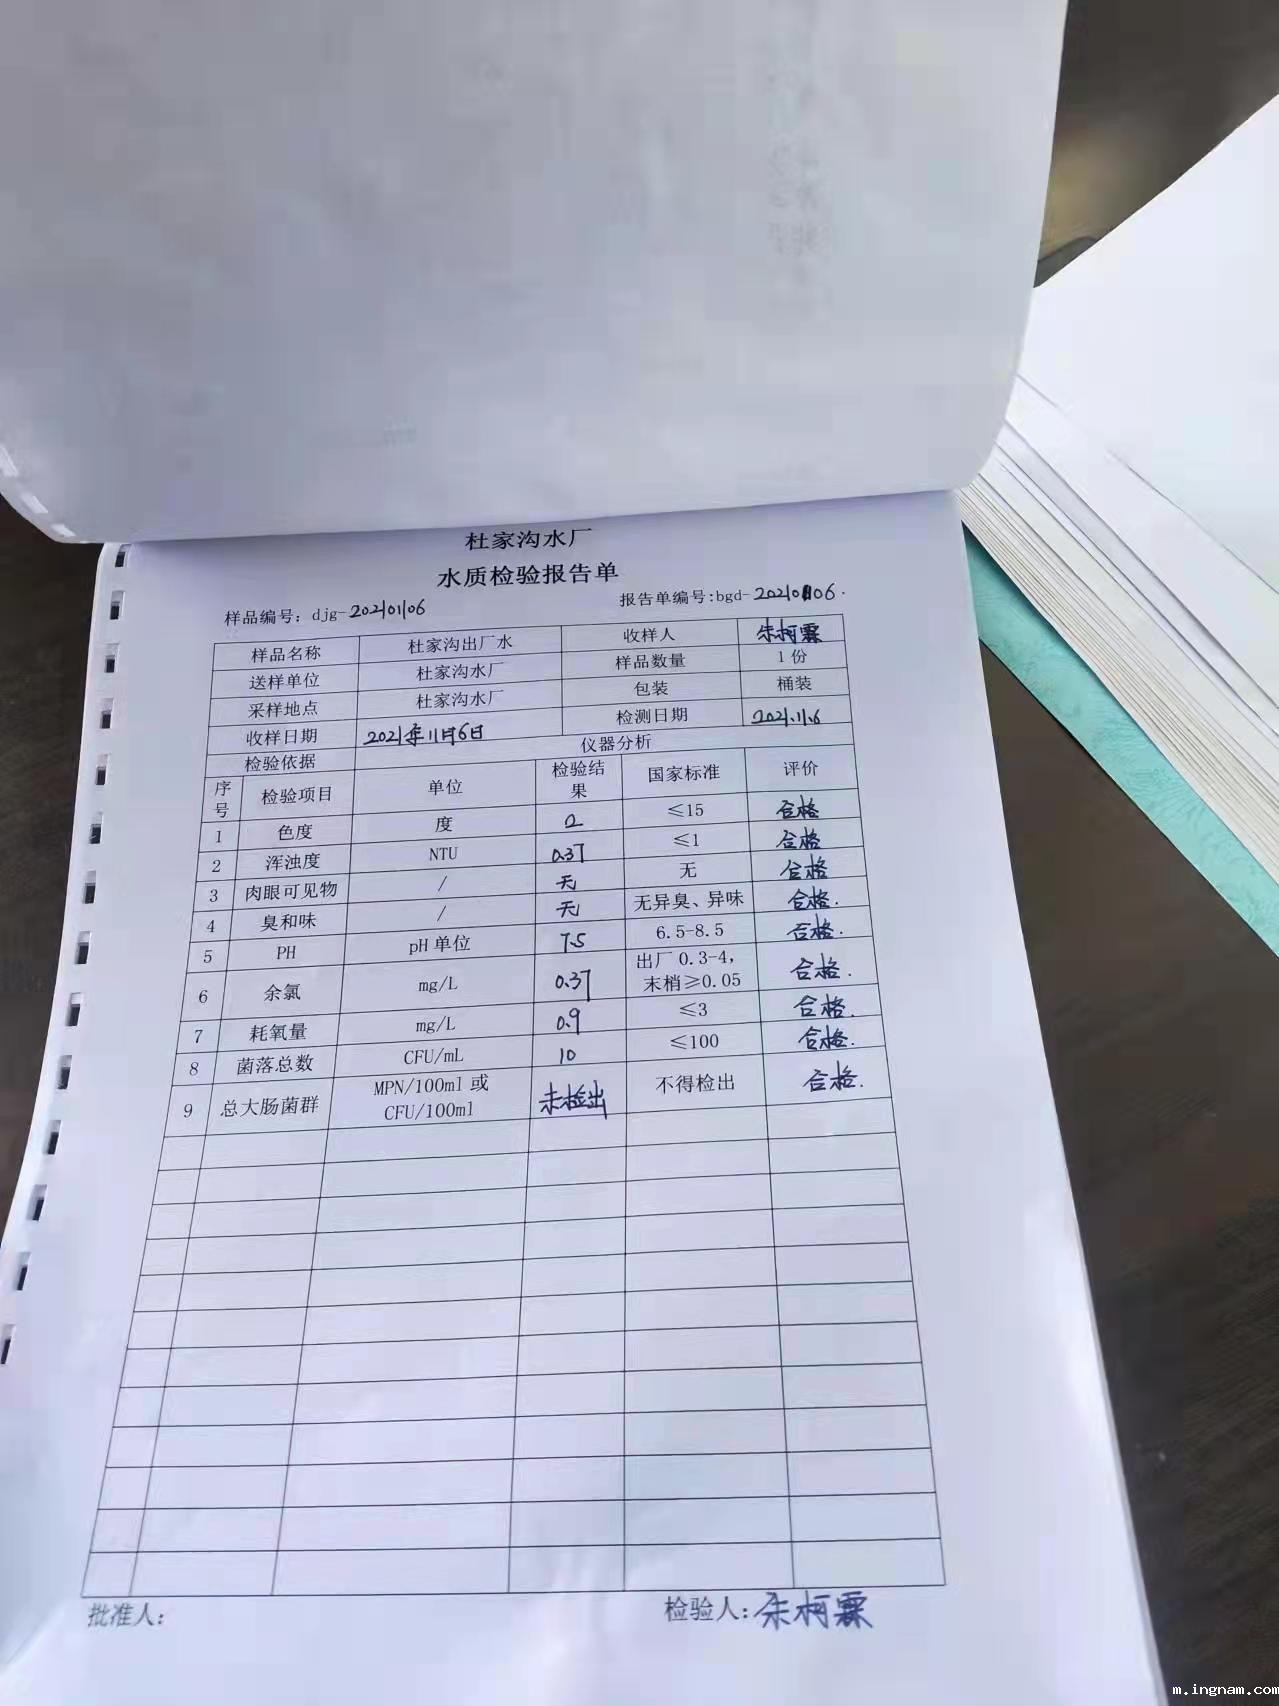 杜家沟水厂
水质检验报告单
样品编号：djg-20210106
报告单编号:bgd-20210106.
样品名称 杜家沟出厂水 收样人 朱柯霖
送样单位 杜家沟水厂 样品数量 1 份
采样地点 杜家沟水厂 包装 桶装
收样日期 2021年11月6日 检测日期 2021.11.6
检验依据 仪器分析
序号 检验项目 单位 检验结果 国家标准 评价
1 色度 度 2 ≤15 合格
2 浑浊度 NTU 0.37 ≤1 合格
3 肉眼可见物 / 无 无 合格
4 臭和味 / 无 无异臭、异味 合格.
5 PH pH 单位 7.5 6.5-8.5 合格.
6 余氯 mg/L 0.37 出厂 0.3-4，末梢≥0.05 合格.
7 耗氧量 mg/L 0.9 ≤3 合格.
8 菌落总数 CFU/mL 10 ≤100 合格.
9 总大肠菌群 MPN/100ml 或 CFU/100ml 未检出 不得检出 合格.
批准人： 检验人：朱柯霖
m.ingnam.com